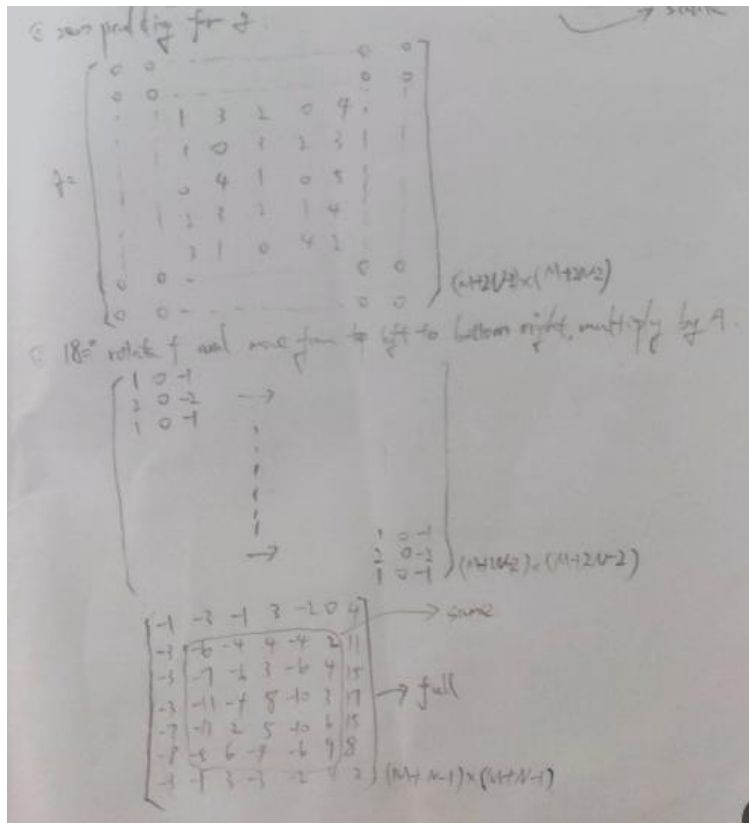 → same
zero padding for f.
0 0 - - - - - - - 0 0
0 0 - - - - - - - 0 0
1 3 2 0 4
1 0 3 2 3
f=
0 4 1 0 5
2 3 2 1 4
3 1 0 4 2
0 0 - - - - - - - 0 0
0 0 - - - - - - - 0 0
(M+2N-2)×(M+2N-2)
180° rotate f and move from top left to bottom right, multiply by A.
1 0 -1
2 0 -2 →
1 0 -1
1 0 -1
→ 2 0 -2
1 0 -1
(M+2N-2)×(M+2N-2)
-1 -3 -1 3 -2 0 4 → same
-3 -6 -4 4 -4 2 11
-3 -7 -6 3 -6 4 15
-3 -11 -4 8 -10 3 17 → full
-7 -11 2 5 -10 6 15
-8 -5 6 -4 -6 9 8
-3 -1 3 -3 -2 4 2
(M+N-1)×(M+N-1)